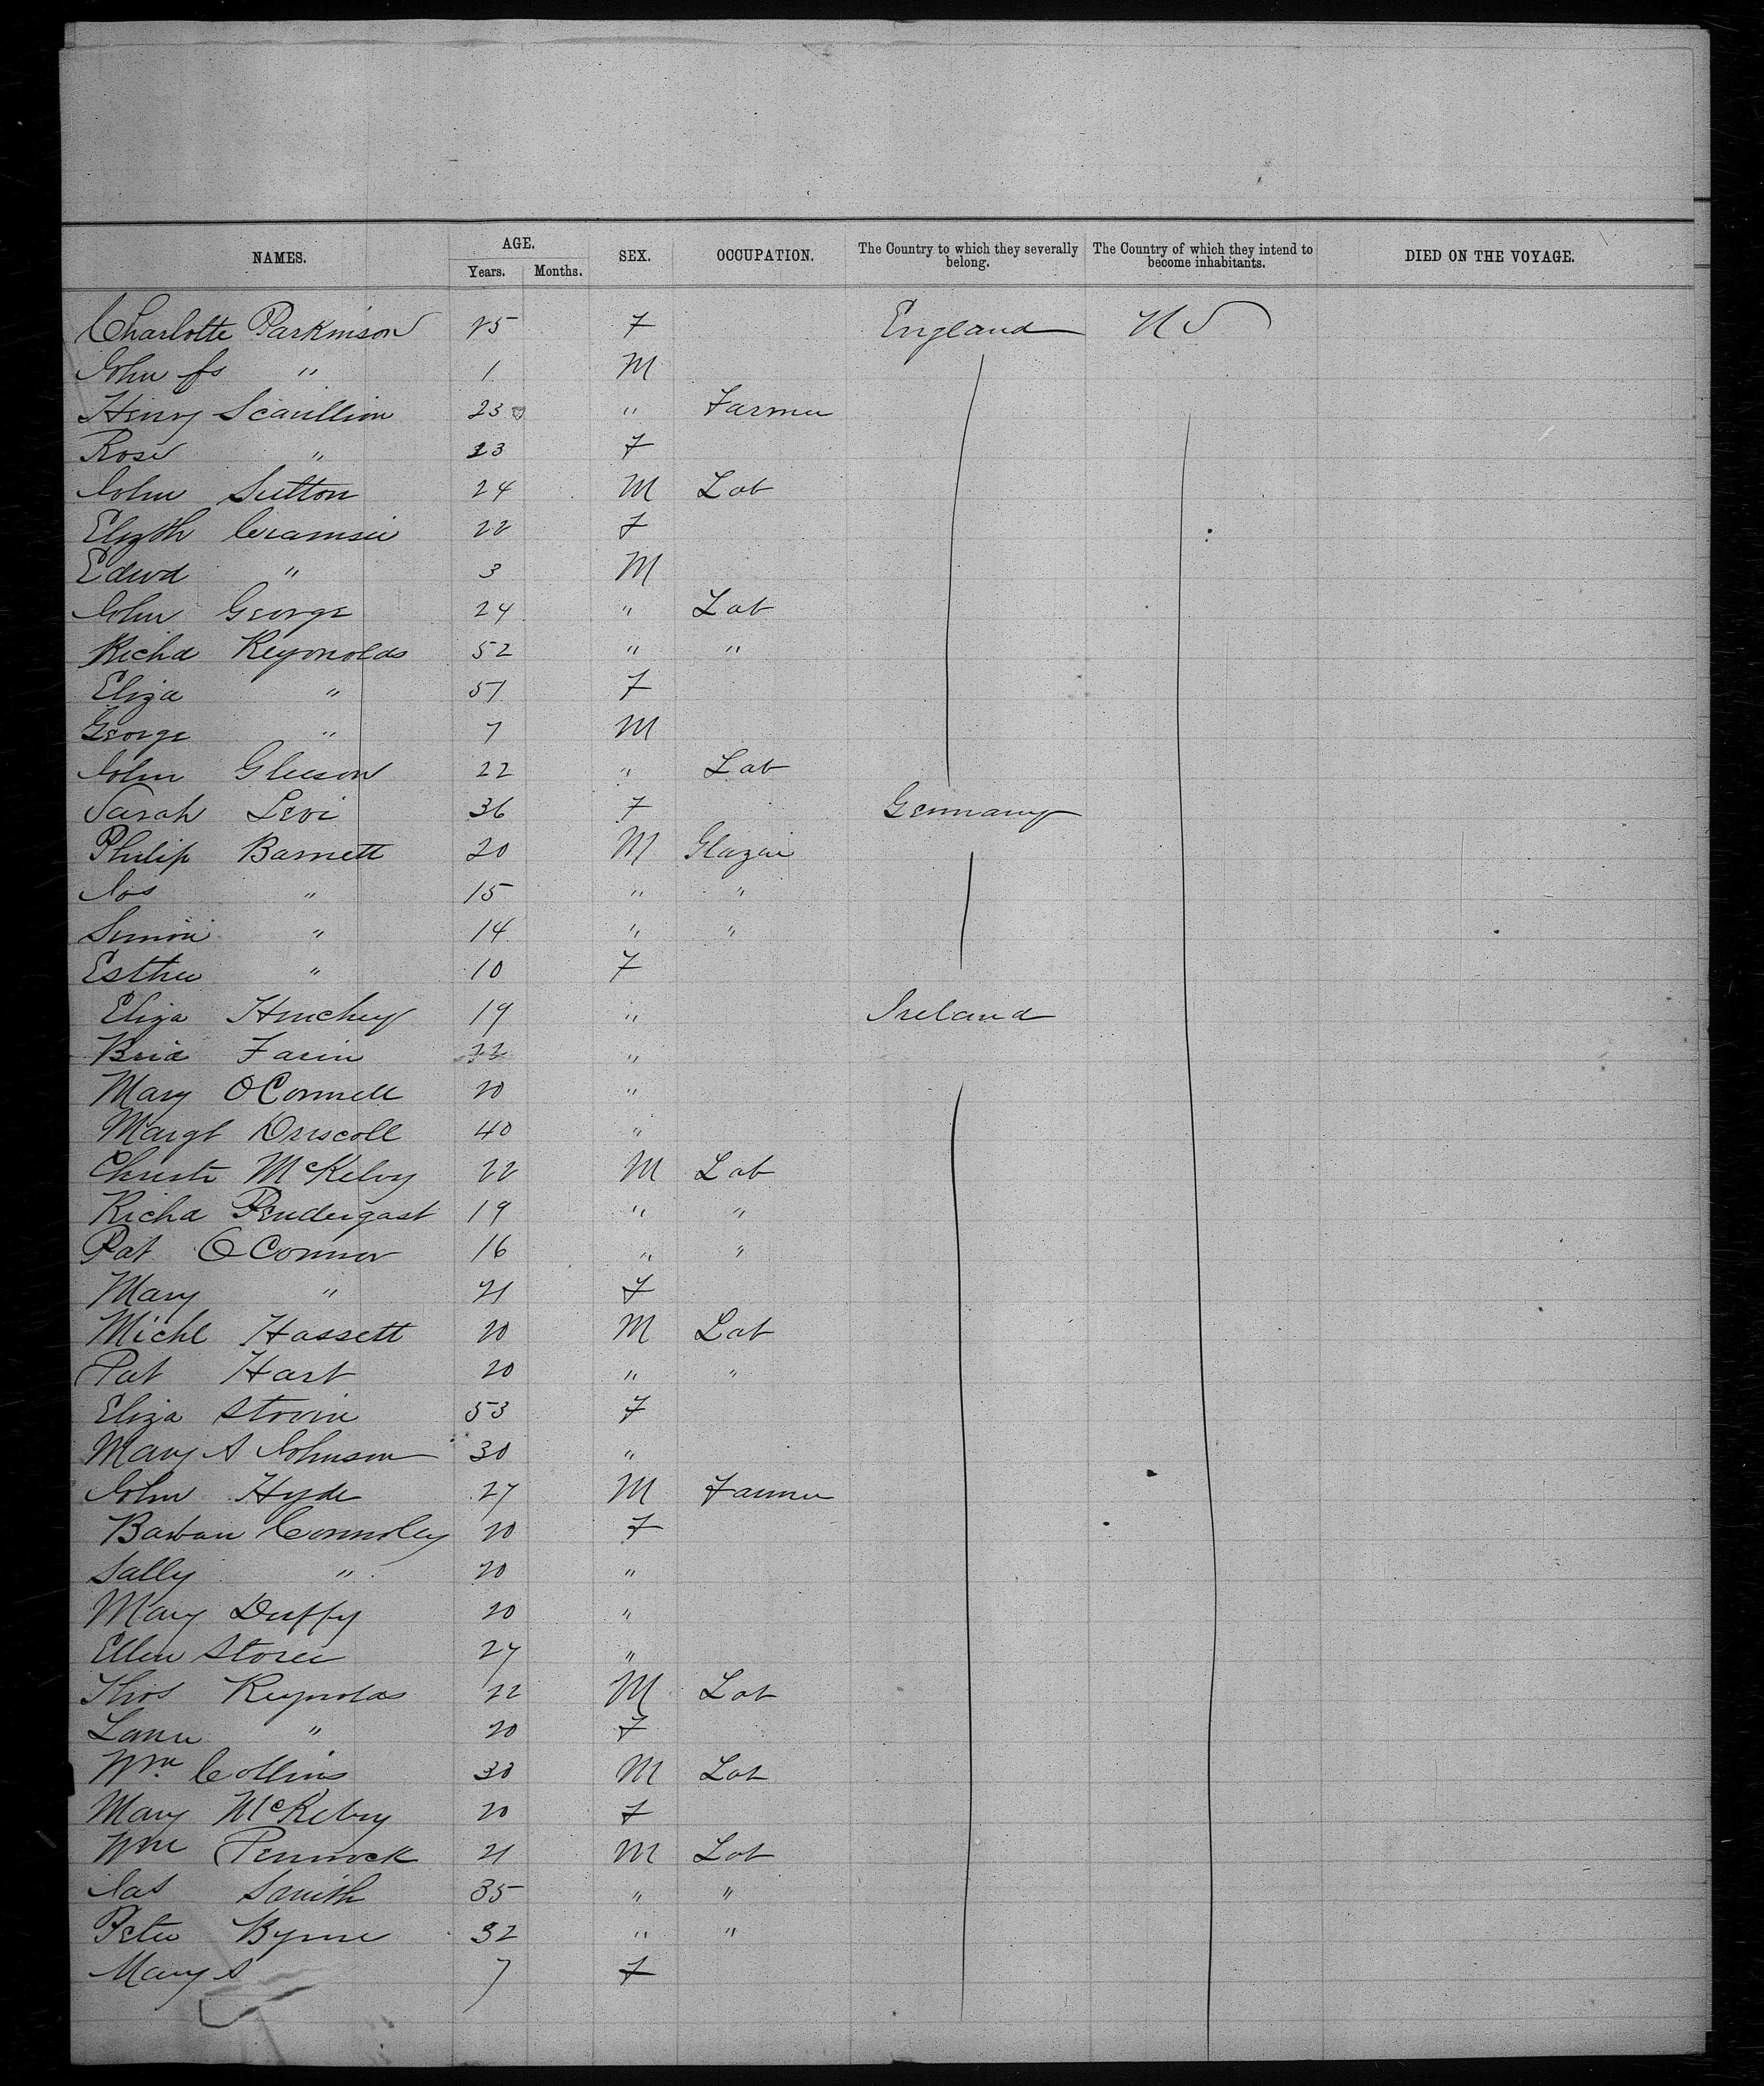 NAMES. AGE. SEX. OCCUPATION. The Country to which they severally belong. The Country of which they intend to become inhabitants. DIED ON THE VOYAGE.
Years. Months.
Charlotte Parkinson 25 F England U S
John " 1 M
Henry Scaullion 23 " Farmer
Rose " 23 F
John Sutton 24 M Lab
Elizth Cramsie 22 F
Edwd " 3 M
John George 24 " Lab
Richd Reynolds 52 " "
Eliza " 57 F
George " 7 M
John Gleeson 22 " Lab
Sarah Levi 36 F Germany
Philip Barnett 20 M Glazier
Jos " 15 " "
Simon " 14 " "
Esther " 10 F
Eliza Hinchey 19 " Ireland
Brid 22 "
Mary OConnell 20 "
Margt Driscoll 40 "
Christr McKelvy 22 M Lab
Richd Pendergast 19 " "
Pat OConnor 16 " "
Mary " 21 F
Michl Hassett 20 M Lab
Pat Hart 20 " "
Eliza 53 F
Mary A Johnson 30 "
John Hyde 27 M Farmer
Connoley 20 F
Sally " 20 "
Mary Duffy 20 "
Ellen 27 "
Thos Reynolds 22 M Lab
" 20 F
Wm Collins 30 M Lab
Mary McKelvy 20 F
Wm Pennock 21 M Lab
Jas Smith 35 " "
Peter Byrne 32 " "
Mary A 7 F